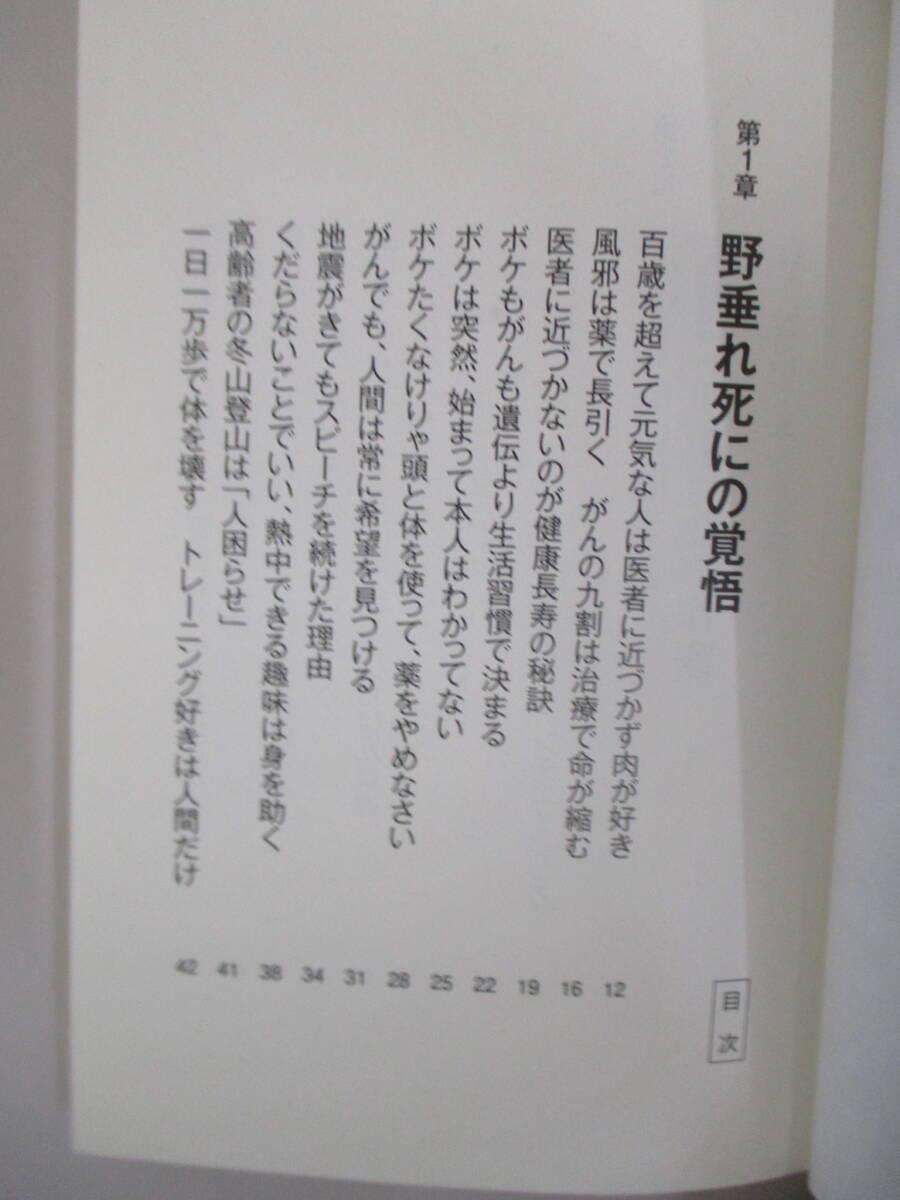 目次
第1章 野垂れ死にの覚悟
百歳を超えて元気な人は医者に近づかず肉が好き 12
風邪は薬で長引く がんの九割は治療で命が縮む 16
医者に近づかないのが健康長寿の秘訣 19
ボケもがんも遺伝より生活習慣で決まる 22
ボケは突然、始まって本人はわかってない 25
ボケたくなけりゃ頭と体を使って、薬をやめなさい 28
がんでも、人間は常に希望を見つける 31
地震がきてもスピーチを続けた理由 34
くだらないことでいい、熱中できる趣味は身を助く 38
高齢者の冬山登山は「人困らせ」 41
一日一万歩で体を壊す トレーニング好きは人間だけ 42